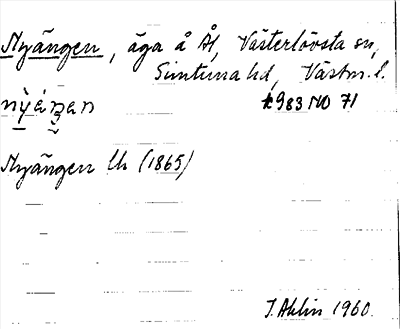 Nyängen, äga å Ål, Västerlövsta sn,
Simtuna hd, Västm. l.
983 NO 71
Nyängen Uh (1865)
J. Ahlin 1960.